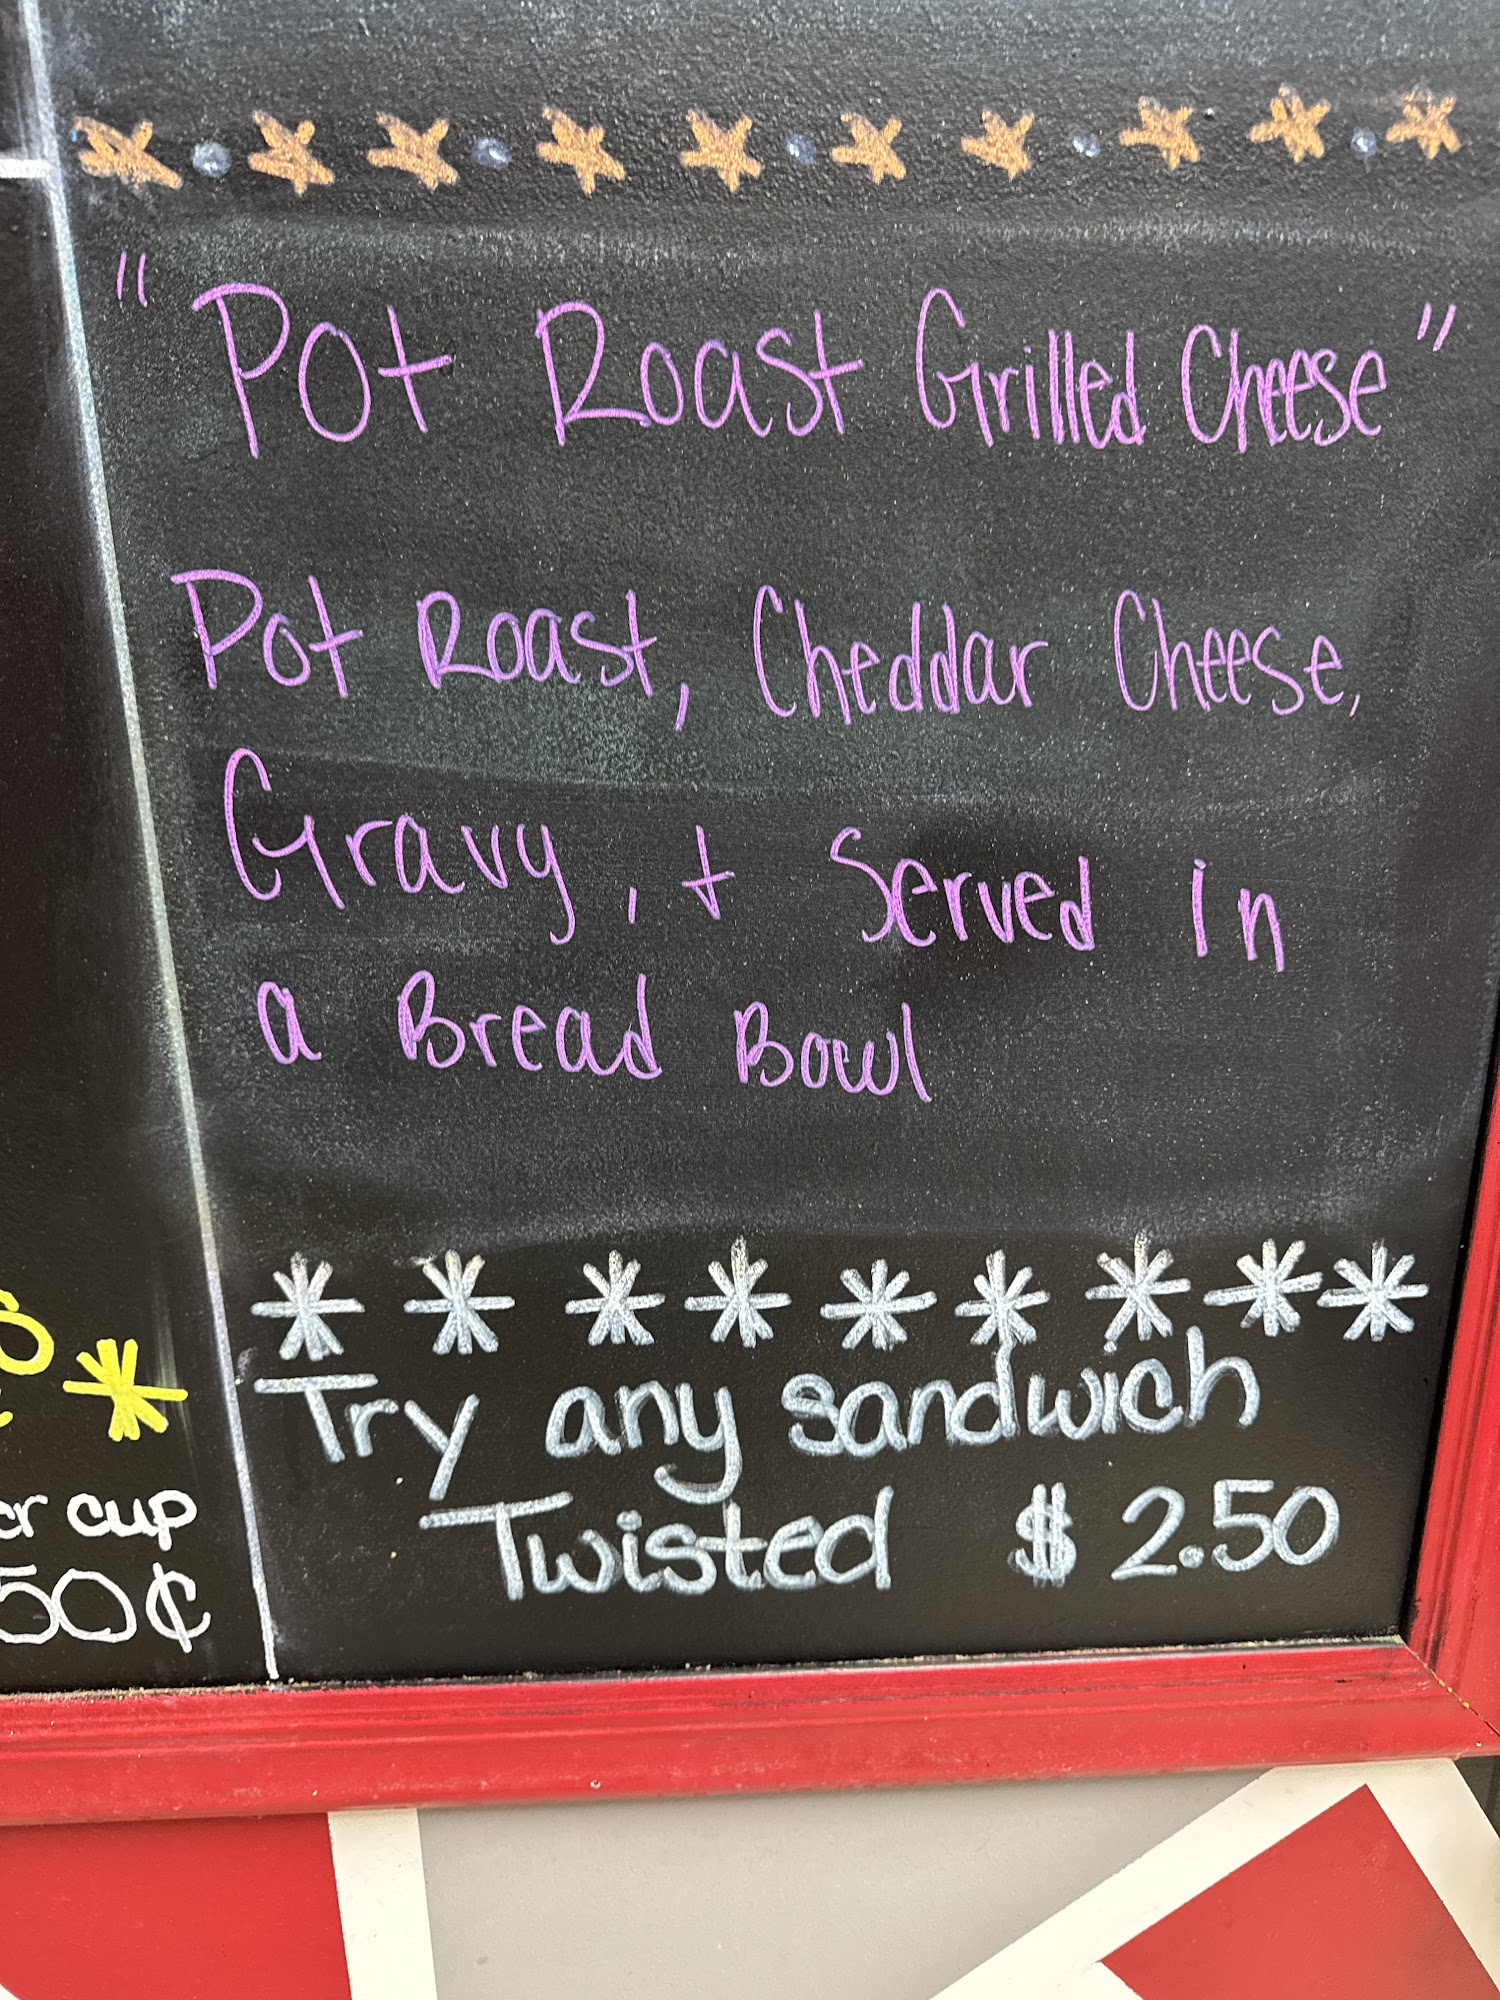 "Pot Roast Grilled Cheese"
Pot Roast, Cheddar Cheese,
Gravy, + Served in
a Bread Bowl
Try any sandwich
Twisted $2.50
cup
50¢